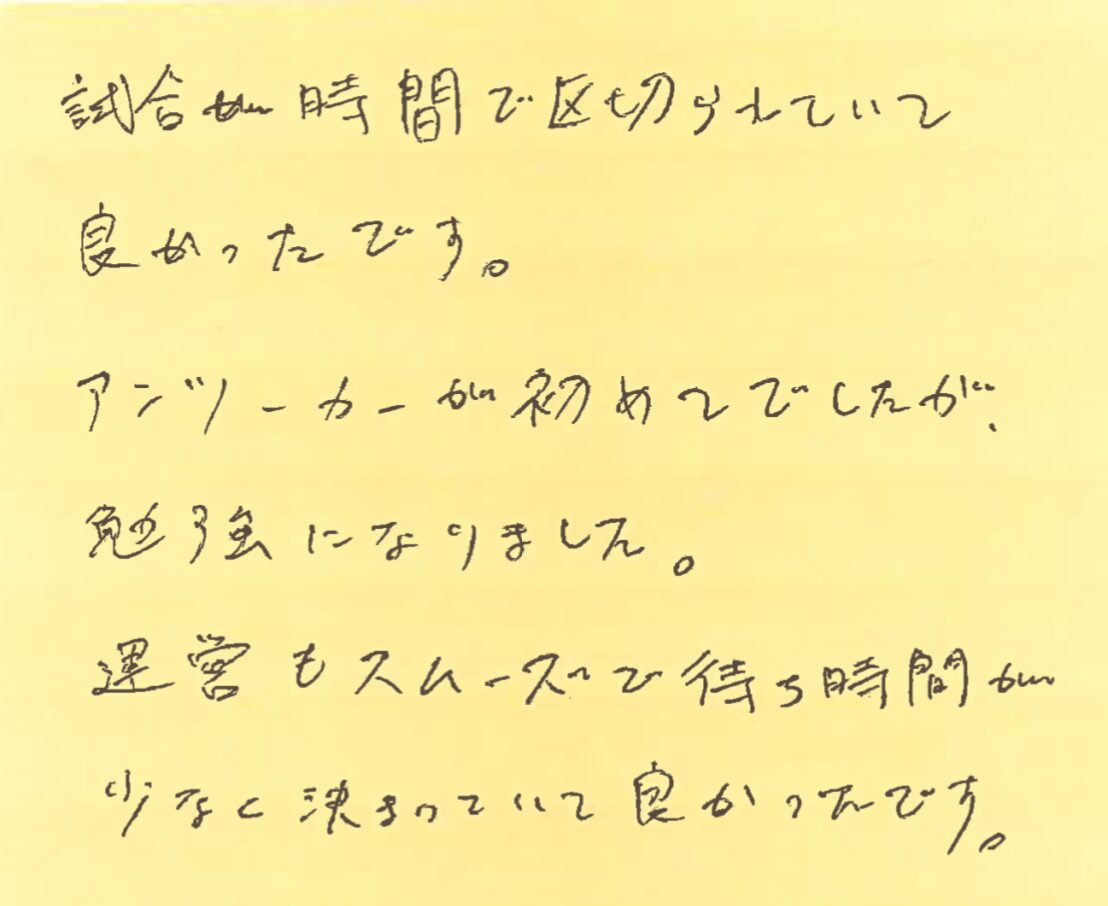 試合が時間で区切られていて
良かったです。
アンツーカーが初めてでしたが、
勉強になりました。
運営もスムーズで待ち時間が
少なく決まっていて良かったです。